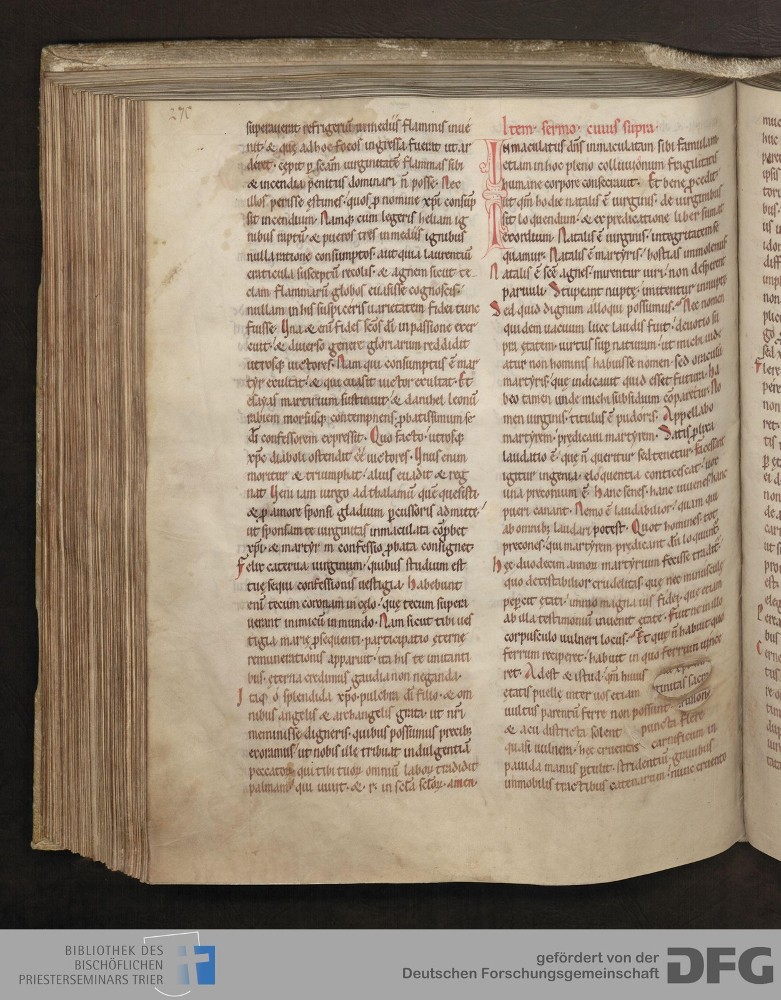 270
superauerat refrigeriũ in mediis flammis inue
nit· & que ad hoc focos ingressa fuerat ut ar
deret· cepit p̱ sc̃am uirginitatẽ flammas sibi
& incendia penitus dominari ñ posse· Nec
illos perisse estimes· quos p̱ nomine xp̃i consũp
sit incendium· Namq; cum legeris heliam ig
nibus raptũ· & pueros tres in mediis ignibus
nulla ratione consumptos· aut quia laurentiũ
craticula susceptũ recolis· & agnem sicut te
clam flammarũ globos euasisse cognoscis·
nullam in his suspiceris uarietatem fidei tunc
fuisse· Una & enĩ fides sc̃os dĩ in passione exer
cuit· & diuerso genere gloriarum reddidit
utrosq; uictores· Nam qui consumptus ẽ mar
tyr exultat· & qui euasit uictor exultat· Et
esayas martirium sustinuit· & danihel leonũ
rabiem morsusq; contempnens· p̱batissimum se
dĩ confessorem expressit· Quo facto· utrosq;
xp̃c diaboli ostendit eẽ uictores· Unus enim
moritur & triumphat· alius euadit & reg
nat Veni iam uirgo ad thalamũ quẽ quesisti·
& p̱ amore sponsi gladium p̱cussoris admitte·
ut sponsam te uirginitas inmaculata cõp̱bet
xp̃i· & martyr̃ m confessio p̱bata consignet·
Felix caterua uirginum· quibus studium est
tue sequi confessionis uestigia· Habebunt
enĩ tecum coronam in celo· que tecum supera
uerant inimicũ in mundo· Nam sicut tibi ues
tigia marie p̱sequenti· participatio eterne
remunerationis apparuit· ita his te imitanti
bus· eterna credimus gaudia non neganda·
Itaq; o splendida xp̃o· pulchra dĩ filio· & om
nibus angelis & archangelis grata· ut nr̃i
meminisse digneris· quibus possumus precib;
exoramus· ut nobis ille tribuat indulgentiã
peccatoꝝ qui tibi tuoꝝ omniũ laboꝝ tradidit
palmam· qui uiuit· & r· in sc̃la sc̃loꝝ· amen·
Item sermo cuius supra·
Inmaculatus dñs inmaculatam sibi famulam
etiam in hoc pleno colluuionum fragilitatis
humane corpore consecrauit· Et bene p̱cedit·
ut qm̃ hodie natalis ẽ uirginis· de uirginibus
sit loquendum· & ex predicatione liber sumat
exordium· Natalis ẽ uirginis· integritatem se
quamur· Natalis ẽ martyris· hostias immolemus
Natalis ẽ sc̃e agnes· mirentur uiri· non desperent
paruuli· Stupeant nupte· imitentur innupte·
Sed quid dignum alloqui possumus· Nec nomen
quidem uacuum luce laudis fuit· deuotio su
pra etatem· uirtus sup̱ naturam· ut michi uide
atur non hominis habuisse nomen· sed oraculũ
martyris· que indicauit quid esset futura· Ha
beo tamen unde michi subsidium cõparetur· No
men uirginis· titulus ẽ pudoris· Appellabo
martyrem· predicaui martyrem· Satis p̱lixa
laudatio ẽ· que ñ queritur sed tenetur· facessant
igitur ingenia· eloquentia conticescat· uox
una preconium ẽ· hanc senes· hanc iuuenes hanc
pueri canant· Nemo ẽ laudabilior· quam qui
ab omnib; laudari potest· Quot homines· tot
precones· qui martyrem predicant dũ loquunt̃
Hec duodecim annoꝝ martyrium fecisse tradit̃·
quo detestabilior crudelitas que nec minuscule
pepercit etati· immo magna uis fidei· que etiam
ab illa testimoniũ inuenit etate· Fuit ne in illo
corpusculo uulneri locus· Et que ñ habuit quo
ferrum reciperet· habuit in quo ferrum uince
ret· Adest & istud· qm̃ huius
etatis puelle uiter uos etiam
uultus parentũ ferre non possunt·
& acu districta solent puncta flere
quasi uulnera· hec cruentas carnificum in
pauida manus p̱tulit· stridentiũ grauibus
immobilis tractibus catenarum· nunc cruento
BIBLIOTHEK DES
BISCHÖFLICHEN
PRIESTERSEMINARS TRIER
gefördert von der
Deutschen Forschungsgemeinschaft
DFG